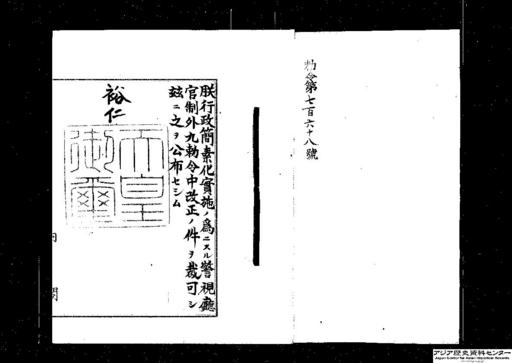 勅令第七百六十八號
朕行政簡素化實施ノ爲ニスル警視廳
官制外九勅令中改正ノ件ヲ裁可シ
玆ニ之ヲ公布セシム
裕仁
天皇
御璽
内閣
アジア歴史資料センター
Japan Center for Asian Historical Records